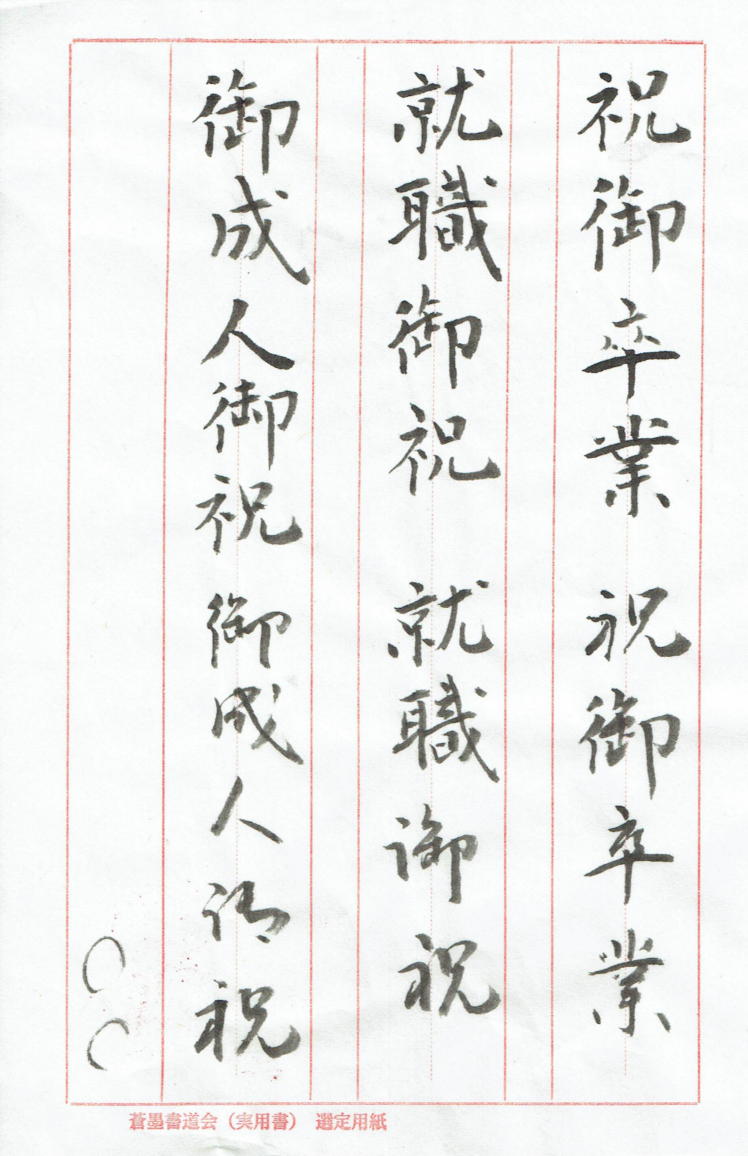 祝御卒業 祝御卒業
就職御祝 就職御祝
御成人御祝 御成人御祝
〇〇
蒼墨書道会(実用書) 選定用紙